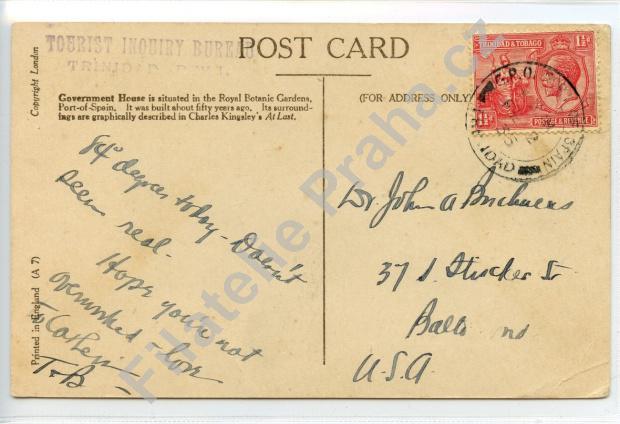 TOURIST INQUIRY BUREAU
TRINIDAD, B.W.I.
POST CARD
Copyright London
Government House is situated in the Royal Botanic Gardens,
Port-of-Spain. It was built about fifty years ago. Its surround-
ings are graphically described in Charles Kingsley's At Last.
(FOR ADDRESS ONLY)
TRINIDAD & TOBAGO
1½d
1½d
POSTAGE & REVENUE
G.P.O.
SPAIN
84° degrees today - Doesn't
seem real.
Hope you're not
overworked - love
to
T.B
Dr John A
37 S. St
Balto md
U.S.A.
Printed in England (A 7)
Filatelie Praha.cz